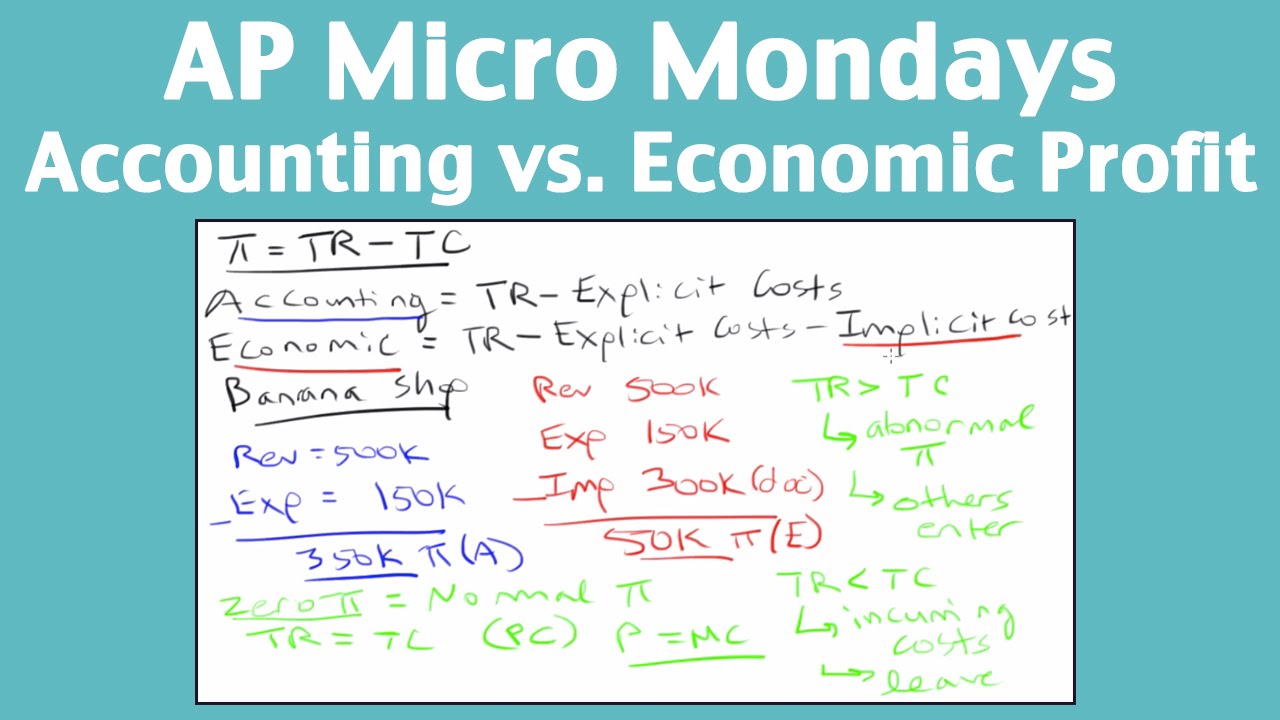 AP Micro Mondays
Accounting vs. Economic Profit
π = TR - TC
Accounting = TR - Explicit Costs
Economic = TR - Explicit Costs - Implicit Cost
Banana Shop
Rev = 500K
- Exp = 150K
350K π (A)
Rev 500K
Exp 150K
- Imp 300K (doc)
50K π (E)
TR > TC
↳ abnormal
π
↳ others
enter
Zero π = Normal π
TR = TC (PC) P = MC
TR < TC
↳ incuring
costs
↳ leave